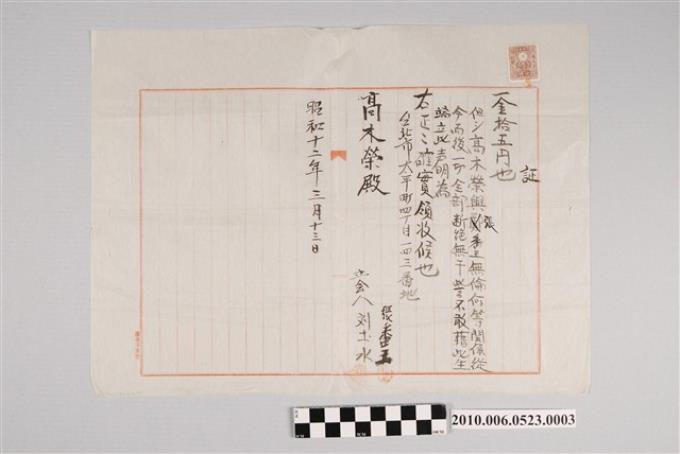 証
一金拾五円也
但シ高木榮與張番玉無倫何等関係從
今而後一切全部断絶無干誓不敢藉此生
端立此声明為
右正ニ確實領收候也
台北市太平町四丁目一四三番地
張番玉
立会人 刘土水
高木榮殿
昭和十二年三月十三日
2010.006.0523.0003